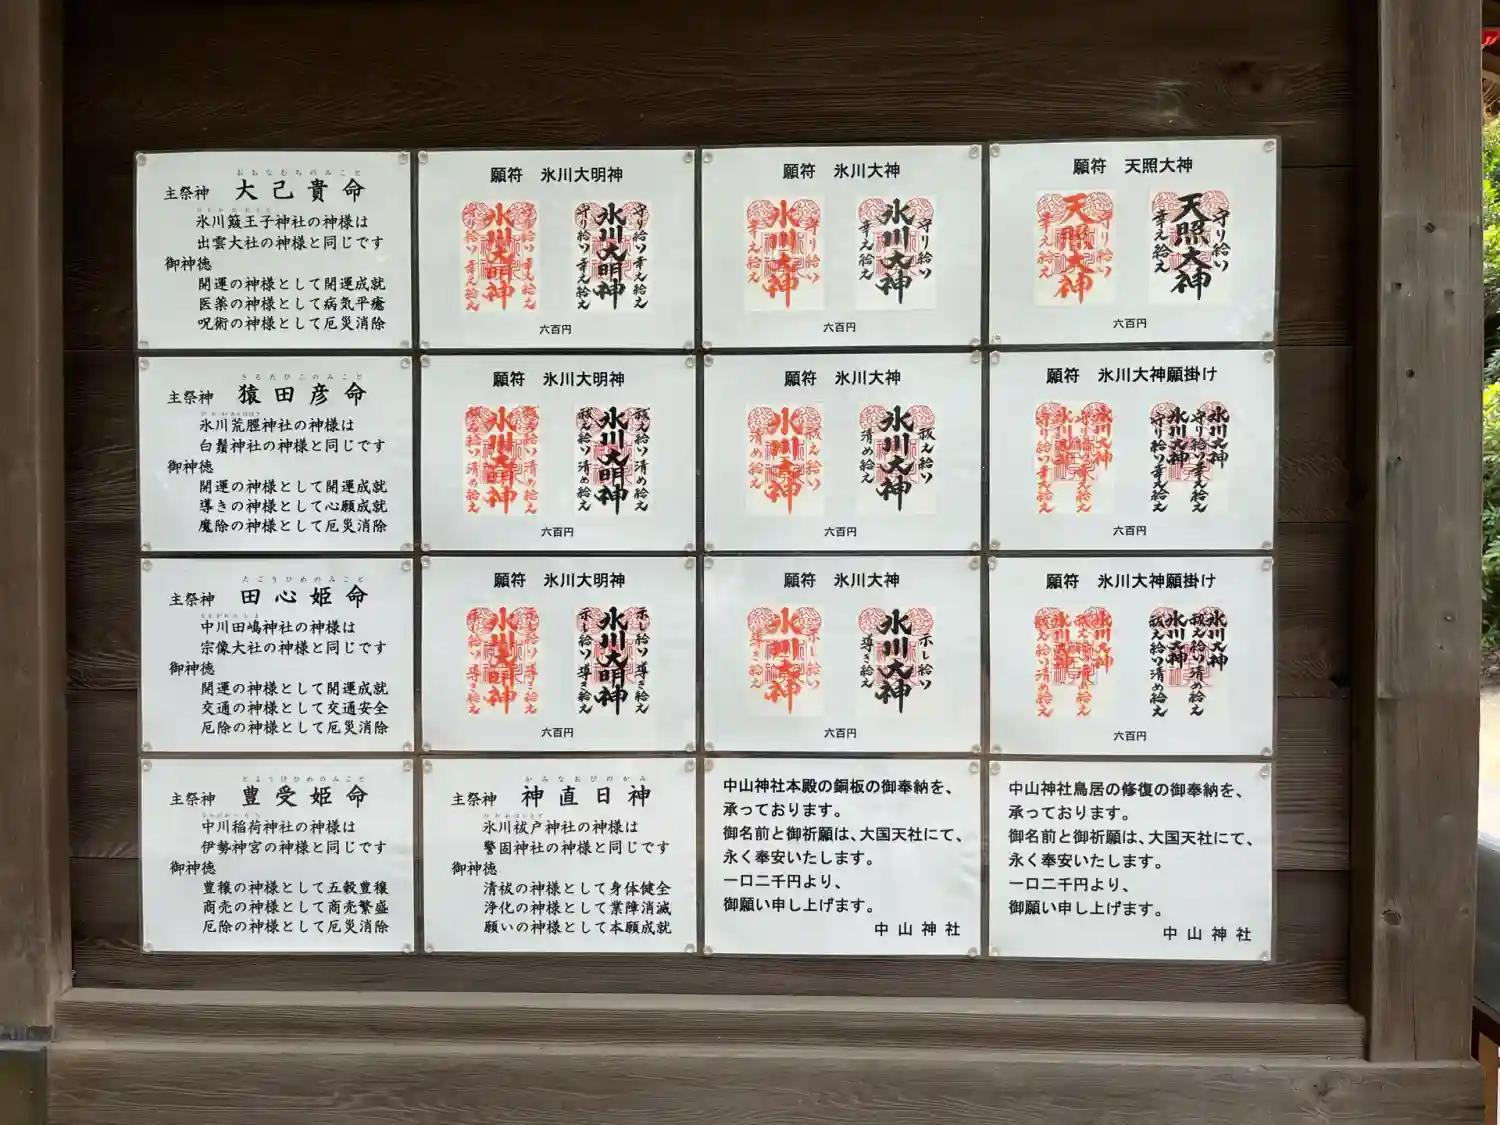 おおなむちのみこと
主祭神 大己貴命
氷川簸王子神社の神様は
出雲大社の神様と同じです
御神徳
開運の神様として開運成就
医薬の神様として病気平癒
呪術の神様として厄災消除
願符 氷川大明神
守り給い幸え給え
氷川大明神
守り給い幸え給え
守り給い幸え給え
氷川大明神
守り給い幸え給え
六百円
願符 氷川大神
守り給い
氷川大神
幸え給え
守り給い
氷川大神
幸え給え
六百円
願符 天照大神
守り給い
天照大神
幸え給え
守り給い
天照大神
幸え給え
六百円
さるたひこのみこと
主祭神 猿田彦命
氷川荒脛神社の神様は
白鬚神社の神様と同じです
御神徳
開運の神様として開運成就
導きの神様として心願成就
魔除の神様として厄災消除
願符 氷川大明神
祓え給い清め給え
氷川大明神
祓え給い清め給え
祓え給い清め給え
氷川大明神
祓え給い清め給え
六百円
願符 氷川大神
祓え給い
氷川大神
清め給え
祓え給い
氷川大神
清め給え
六百円
願符 氷川大神願掛け
氷川大神
守り給い幸え給え
氷川大神
守り給い幸え給え
氷川大神
守り給い幸え給え
氷川大神
守り給い幸え給え
六百円
たごりひめのみこと
主祭神 田心姫命
中川田嶋神社の神様は
宗像大社の神様と同じです
御神徳
開運の神様として開運成就
交通の神様として交通安全
厄除の神様として厄災消除
願符 氷川大明神
示し給い導き給え
氷川大明神
示し給い導き給え
示し給い導き給え
氷川大明神
示し給い導き給え
六百円
願符 氷川大神
示し給い
氷川大神
導き給え
示し給い
氷川大神
導き給え
六百円
願符 氷川大神願掛け
氷川大神
祓え給い清め給え
氷川大神
祓え給い清め給え
氷川大神
祓え給い清め給え
氷川大神
祓え給い清め給え
六百円
とようけひめのみこと
主祭神 豊受姫命
中川稲荷神社の神様は
伊勢神宮の神様と同じです
御神徳
豊穣の神様として五穀豊穣
商売の神様として商売繁盛
厄除の神様として厄災消除
かみなおびのかみ
主祭神 神直日神
氷川祓戸神社の神様は
警固神社の神様と同じです
御神徳
清祓の神様として身体健全
浄化の神様として業障消滅
願いの神様として本願成就
中山神社本殿の銅板の御奉納を、
承っております。
御名前と御祈願は、大国天社にて、
永く奉安いたします。
一口二千円より、
御願い申し上げます。
中山神社
中山神社鳥居の修復の御奉納を、
承っております。
御名前と御祈願は、大国天社にて、
永く奉安いたします。
一口二千円より、
御願い申し上げます。
中山神社